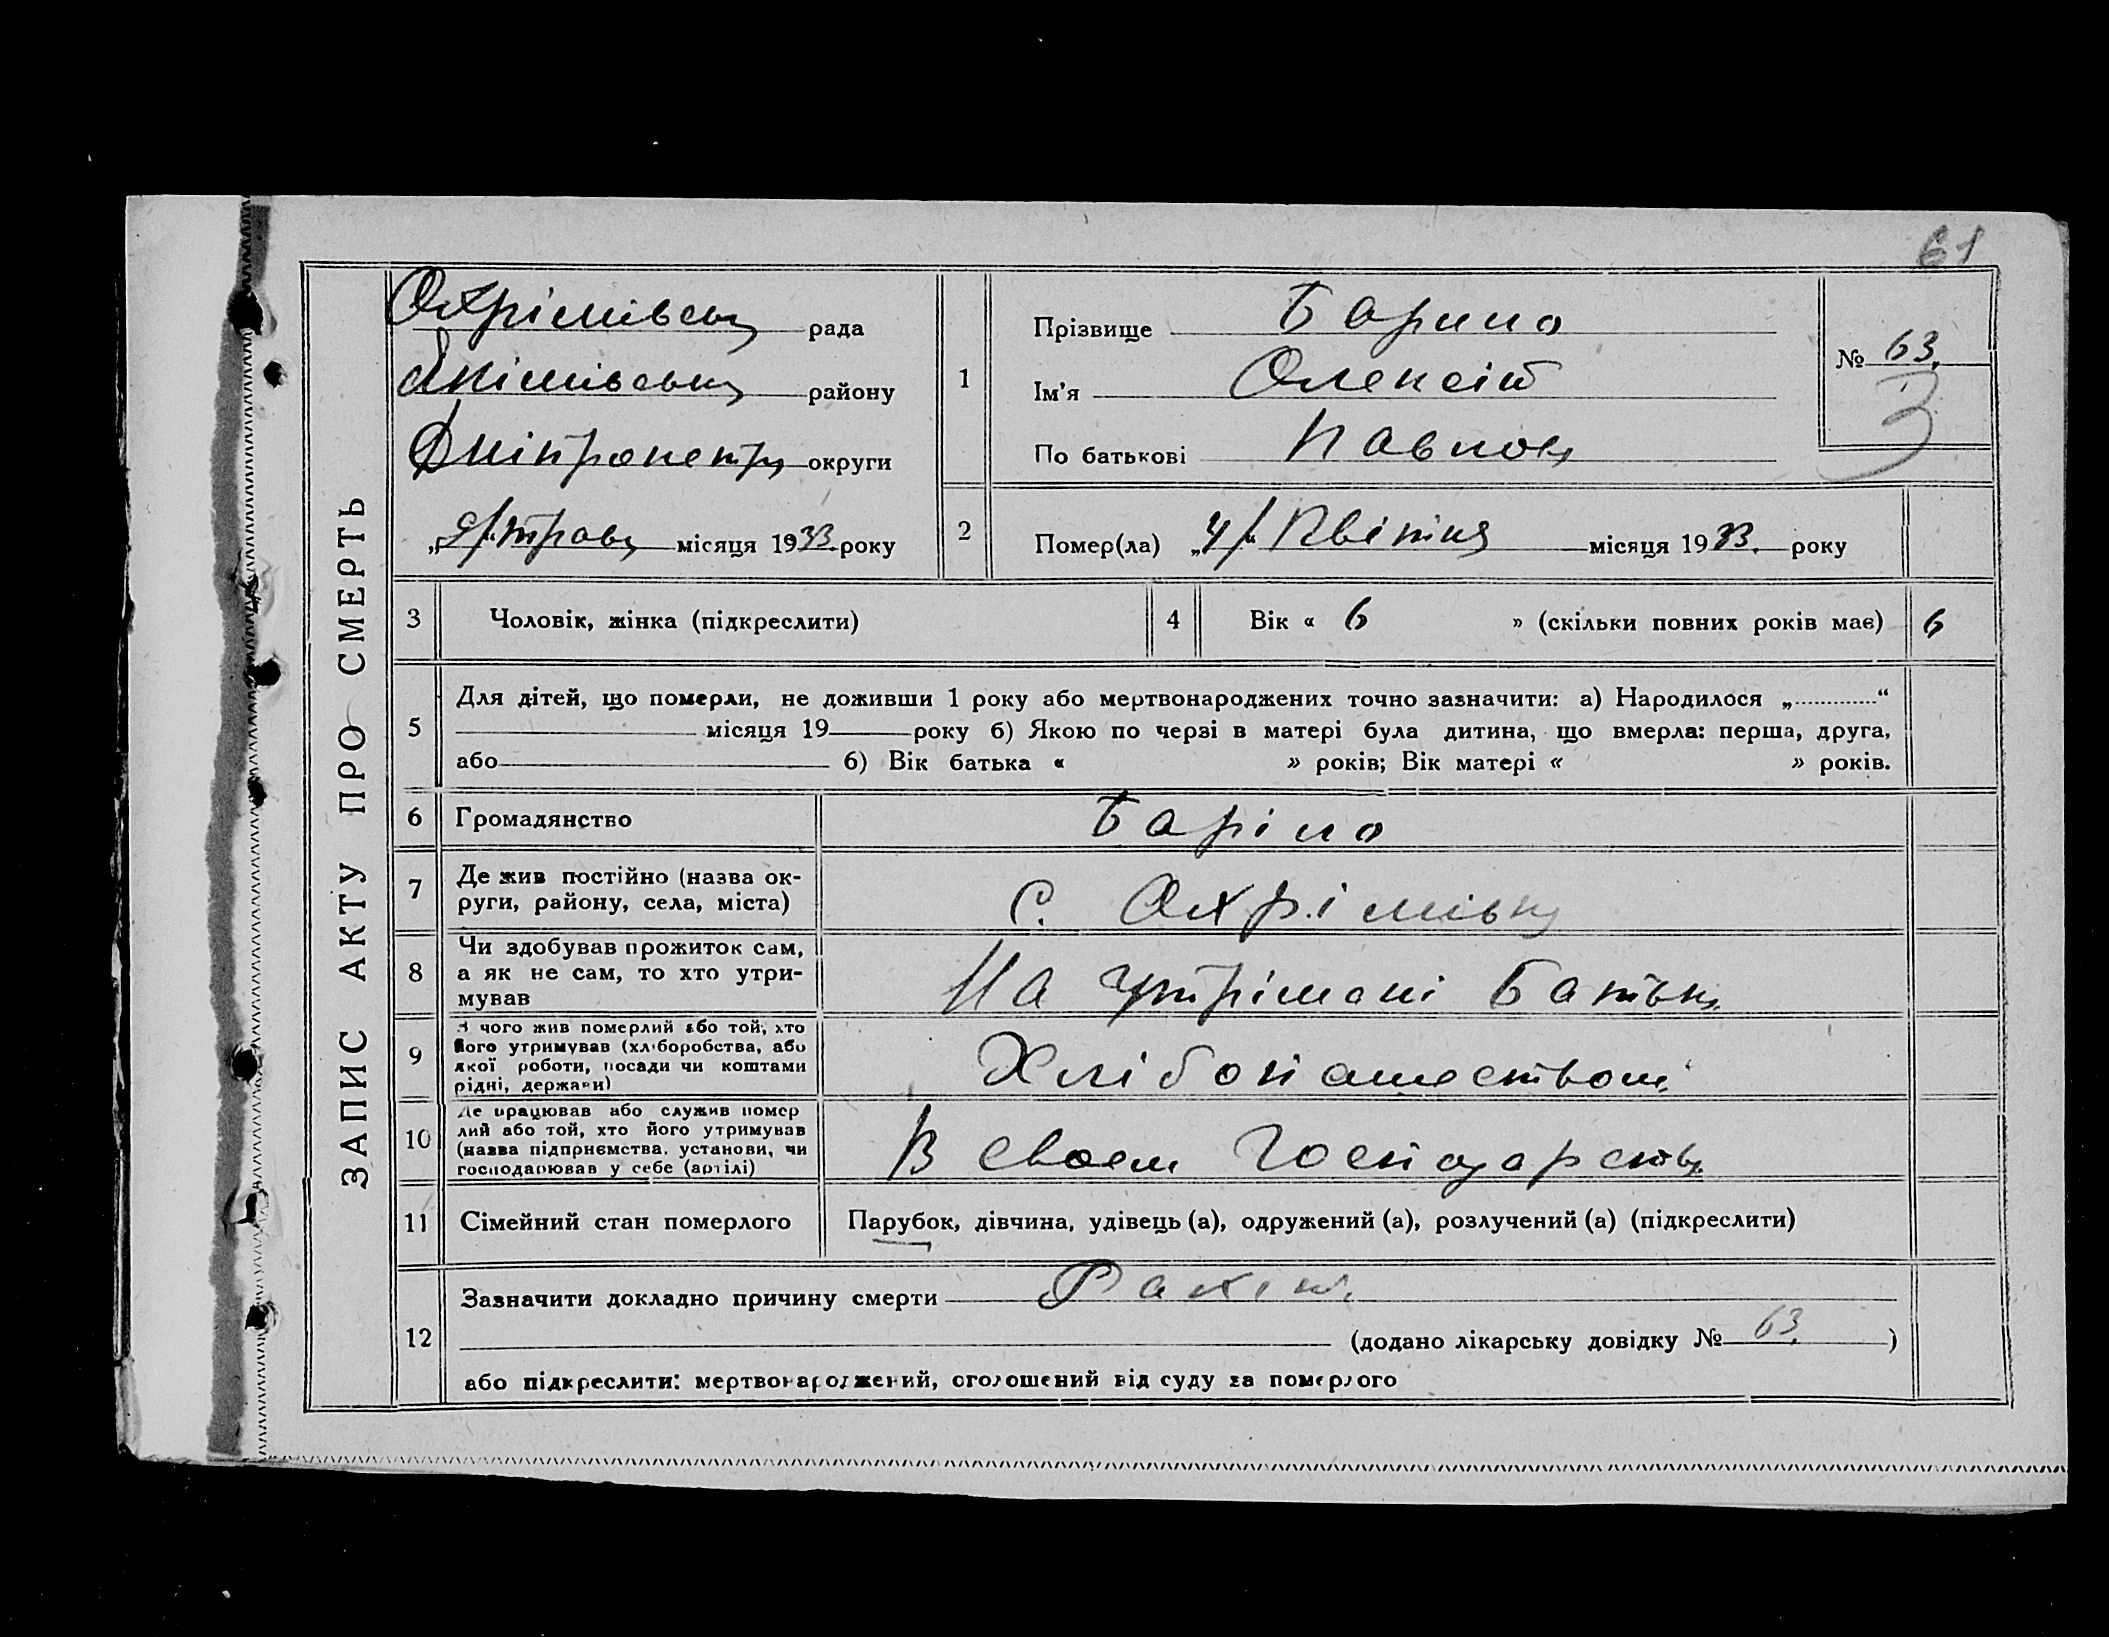 61
ЗАПИС АКТУ ПРО СМЕРТЬ
Охрімівськ рада
Якімівськ району
Дніпропетр округи
„9/ трав місяця 1933 року
1
Прізвище
Ім'я Олексій
По батькові Павлов
№ 63.
3
2
Помер(ла) „4/" Квітня місяця 1933. року
3
Чоловік, жінка (підкреслити)
4
Вік « 6 » (скільки повних років має)
6
5
Для дітей, що померли, не доживши 1 року або мертвонароджених точно зазначити: а) Народилося „............“
місяця 19 року б) Якою по черзі в матері була дитина, що вмерла: перша, друга,
або б) Вік батька « » років; Вік матері « » років.
6
Громадянство
7
Де жив постійно (назва ок-
руги, району, села, міста)
С. Охрімівк
8
Чи здобував прожиток сам,
а як не сам, то хто утри-
мував
На утрімані Батьк
9
З чого жив померлий або той, хто
його утримував (хліборобства, або
якої роботи, посади чи коштами
рідні, держави)
Хлібопашеством
10
Де працював або служив помер
лий або той, хто його утримував
(назва підприємства, установи, чи
господарював у себе (артілі)
В своем Господарств
11
Сімейний стан померлого
Парубок, дівчина, удівець (а), одружений (а), розлучений (а) (підкреслити)
12
Зазначити докладно причину смерти Рахіт.
(додано лікарську довідку № 63. )
або підкреслити: мертвонароджений, оголошений від суду за померлого